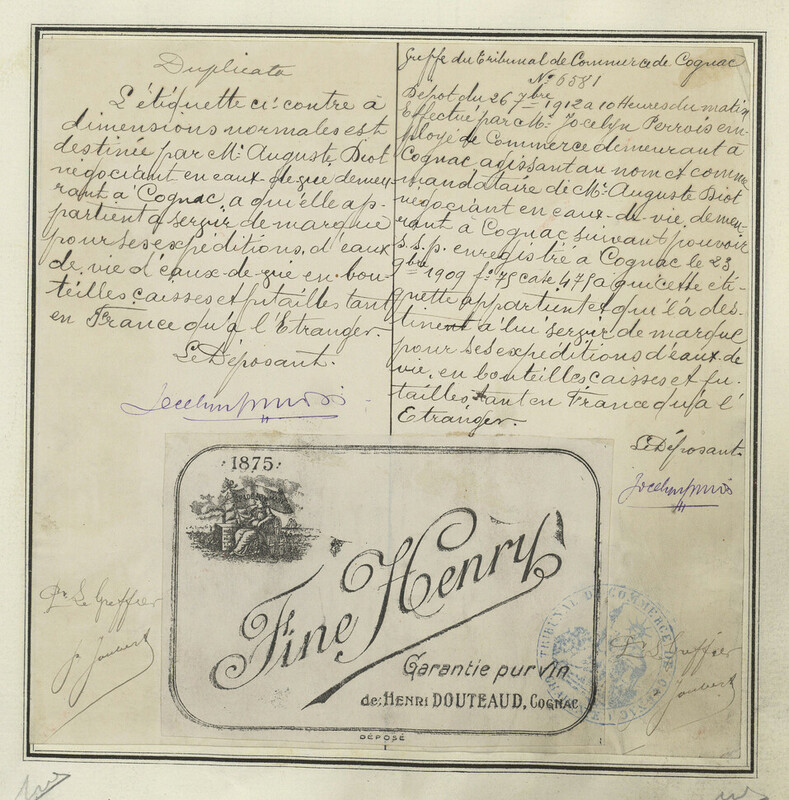 Duplicata
L'étiquette ci-contre à
dimensions normales est
destinée par Mr Auguste Biot
négociant en eaux-de-vie demeu-
rant à Cognac, a qu'elle ap-
partient a servir de marque
pour ses expéditions, d'eaux
de vie d'eaux-de-vie en bou-
teilles, caisses et futailles tant
en France qu'à l'Etranger.
Le Déposant.
Greffe du Tribunal de Commerce de Cognac
No 6581
Depot du 26 7bre 1912 a 10 Heures du matin
Effectué par Mr Jocelyn Perrois em-
ployé de Commerce demeurant à
Cognac agissant au nom et comme
mandataire de Mr Auguste Biot
négociant en eaux-de-vie, demeu-
rant a Cognac suivant pouvoir
s.s.p. enregistré a Cognac le 23
9bre 1909 fo 75 case 475 a qui cette éti-
quette appartient et qu'il a des-
tinent a lui servir de marque
pour ses expéditions d'eaux-de
vie, en bouteilles, caisses et fu-
tailles tant en France qu'à l'
Etranger.
Le Déposant
1875
Fine Henry
Garantie pur vin
de: HENRI DOUTEAUD, COGNAC
DÉPOSÉ
Pr Le Greffier
Joubert
TRIBUNAL DE COMMERCE DE COGNAC
Pr Le Greffier
Joubert